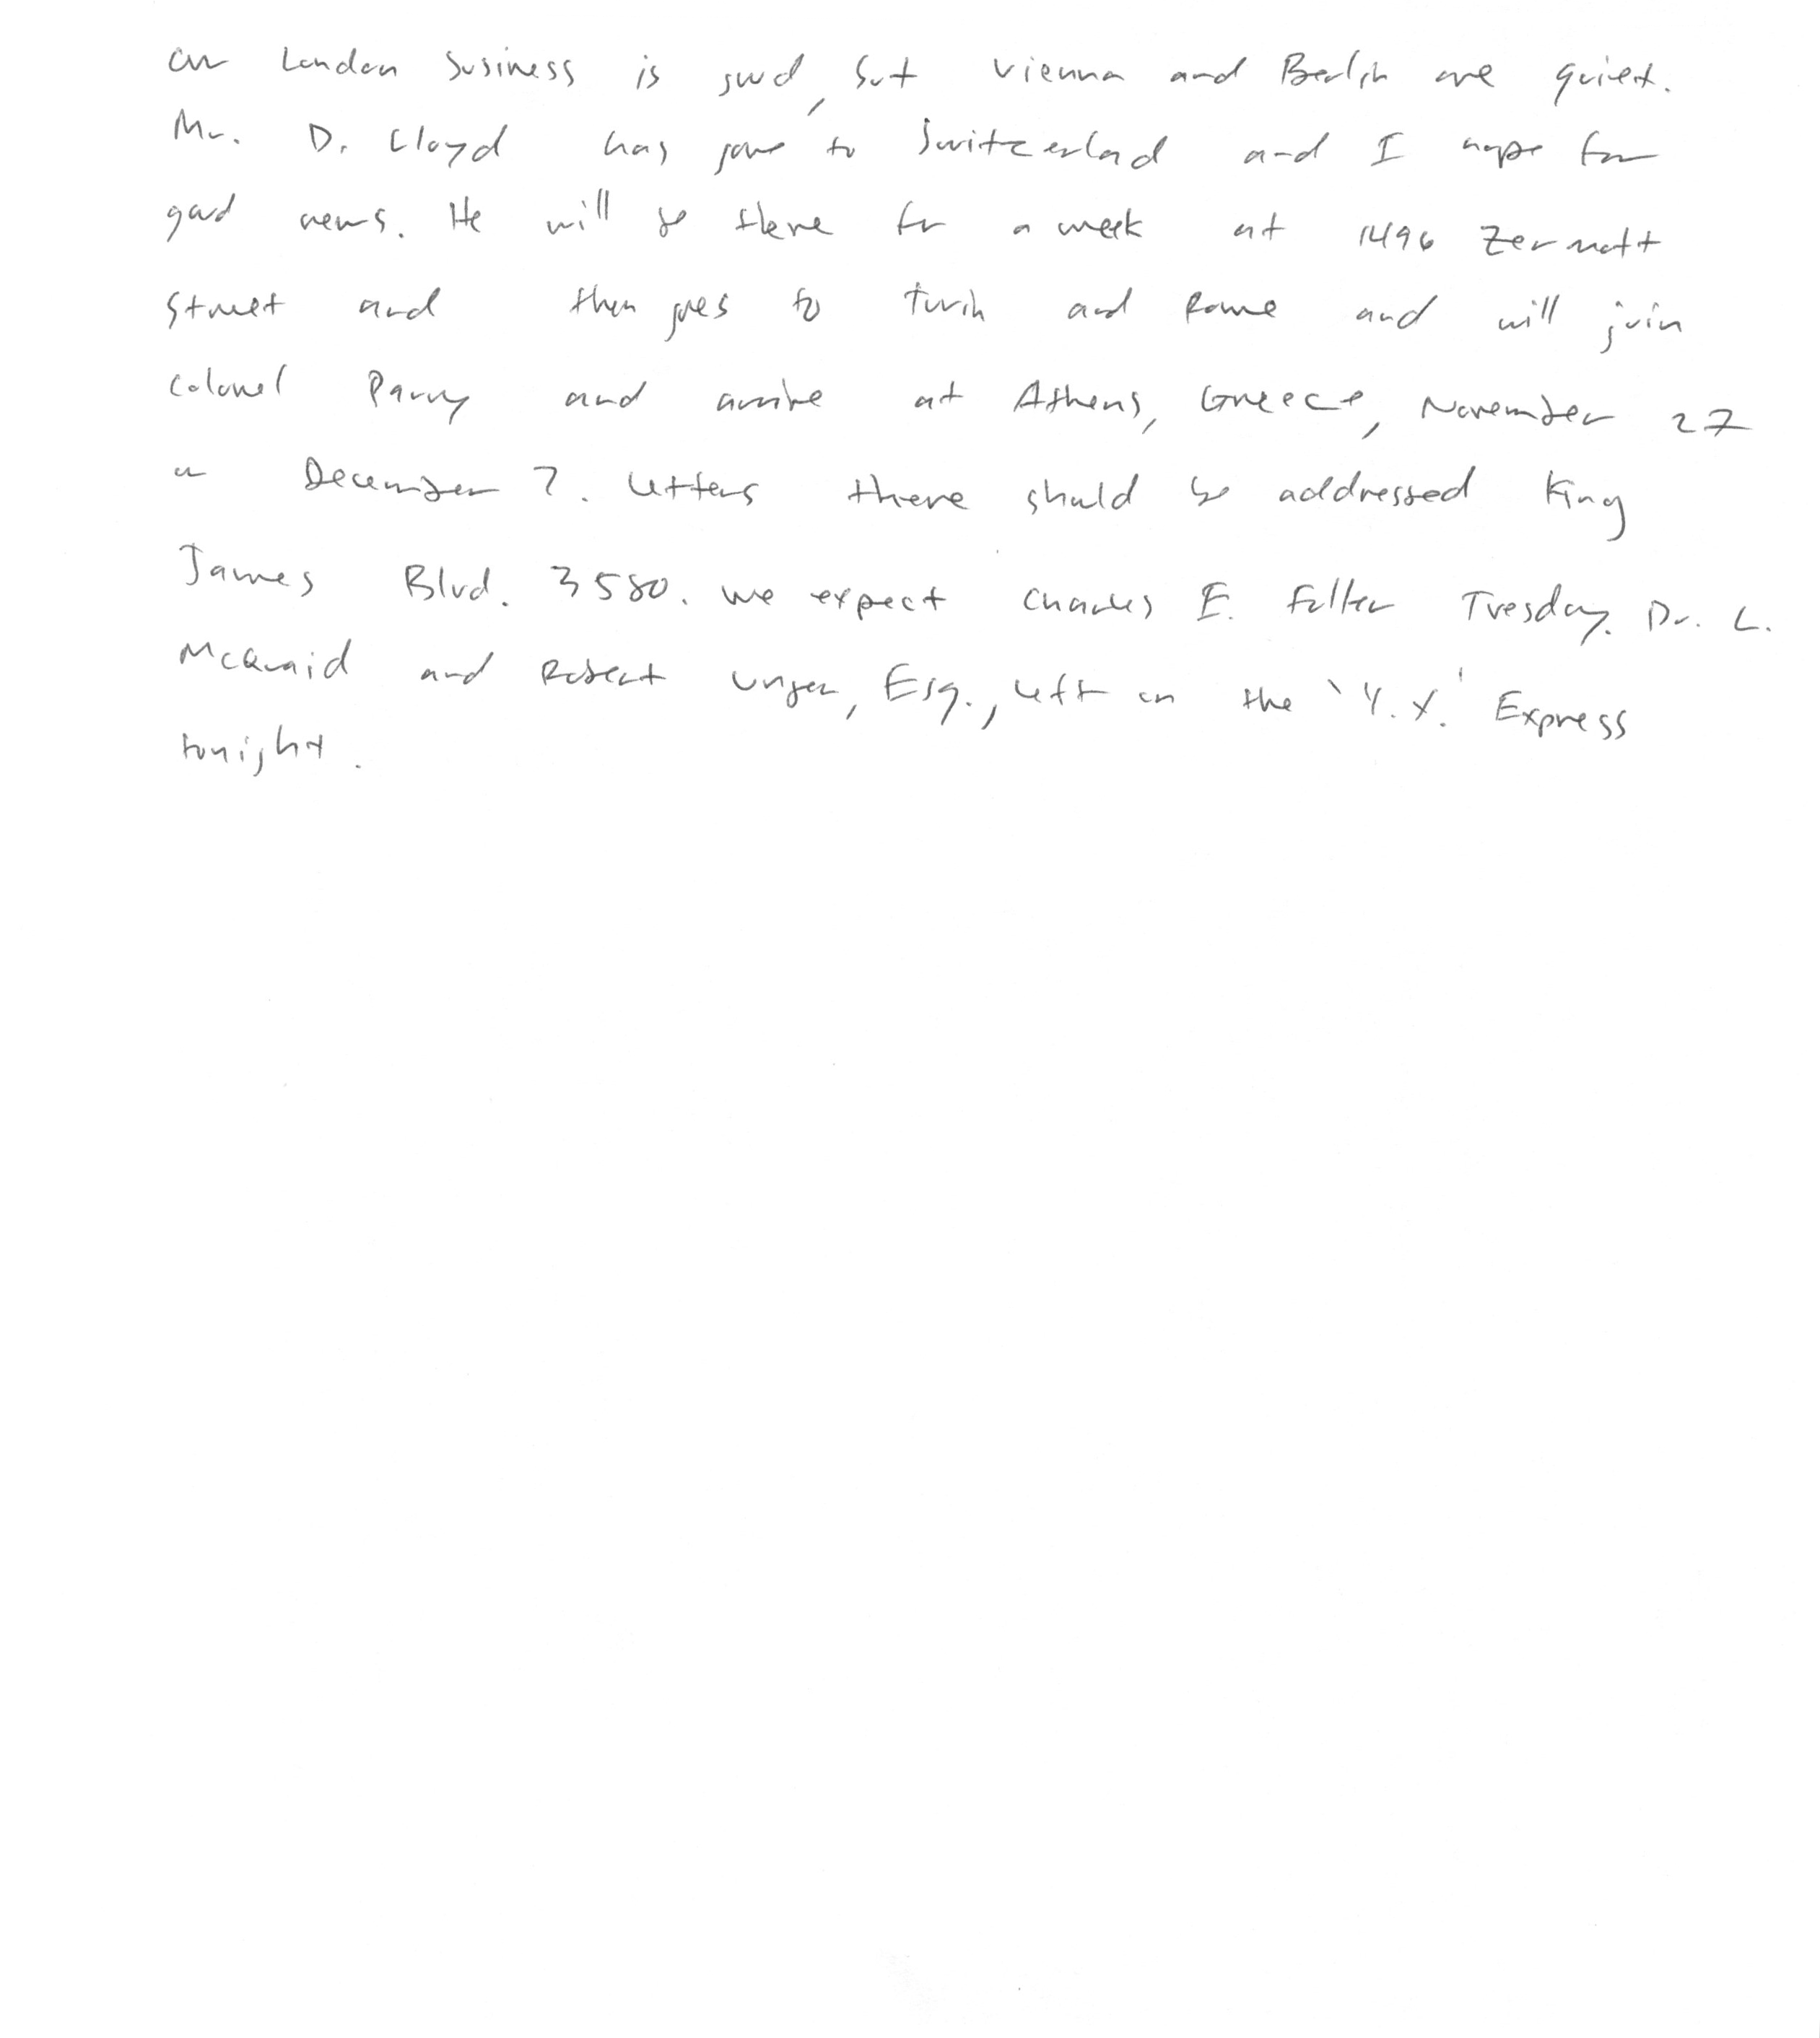 Our London business is good, but Vienna and Berlin are quiet.
Mr. D. Lloyd has gone to Switzerland and I hope for
good news. He will be there for a week at 1496 Zermott
Street and then goes to Turin and Rome and will join
Colonel Parry and arrive at Athens, Greece, November 27
or December 2. Letters there should be addressed King
James Blvd. 3580. We expect Charles E. Fuller Tuesday. Dr. L.
McQuaid and Robert Unger, Esq., left on the 'Y.X.' Express
tonight.